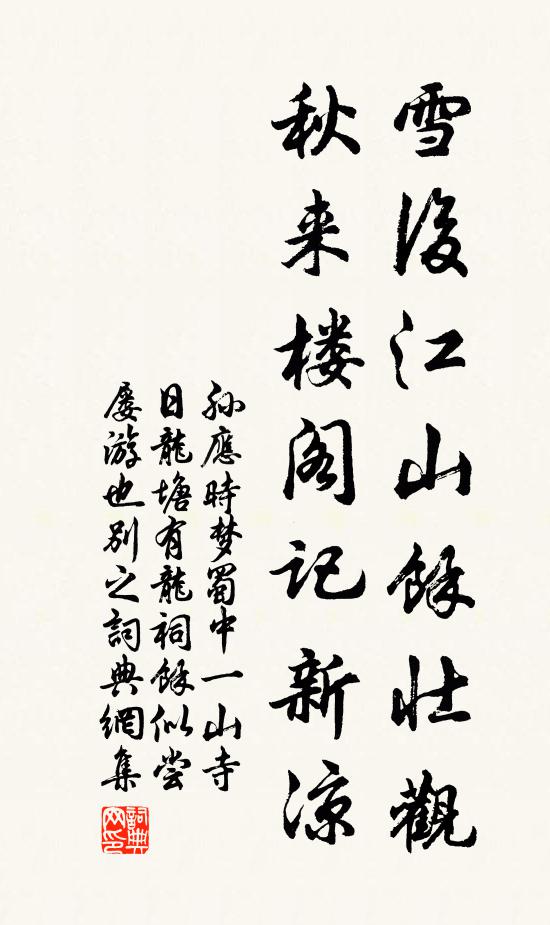 雪後江山餘壯觀
秋来楼阁记新凉
孙應時梦蜀中一山寺
日龍塘有龍祠餘似尝
屡游也别之詞典網集
詞典
网印